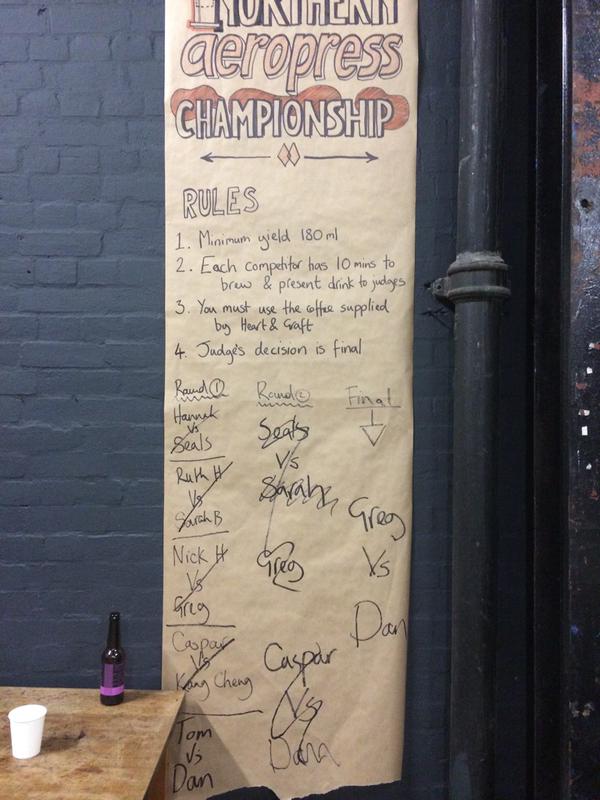 NORTHERN
aeropress
CHAMPIONSHIP
RULES
1. Minimum yield 180ml
2. Each competitor has 10 mins to
brew & present drink to judges
3. You must use the coffee supplied
by Heart & Graft
4. Judge's decision is final
Round 1
Hannah
Vs
Seals
Ruth H
Vs
Sarah B
Nick H
Vs
Greg
Caspar
Vs
Kang Cheng
Tom
Vs
Dan
Round 2
Seals
Vs
Sarah
Greg
Caspar
Vs
Dan
Final
Greg
Vs
Dan